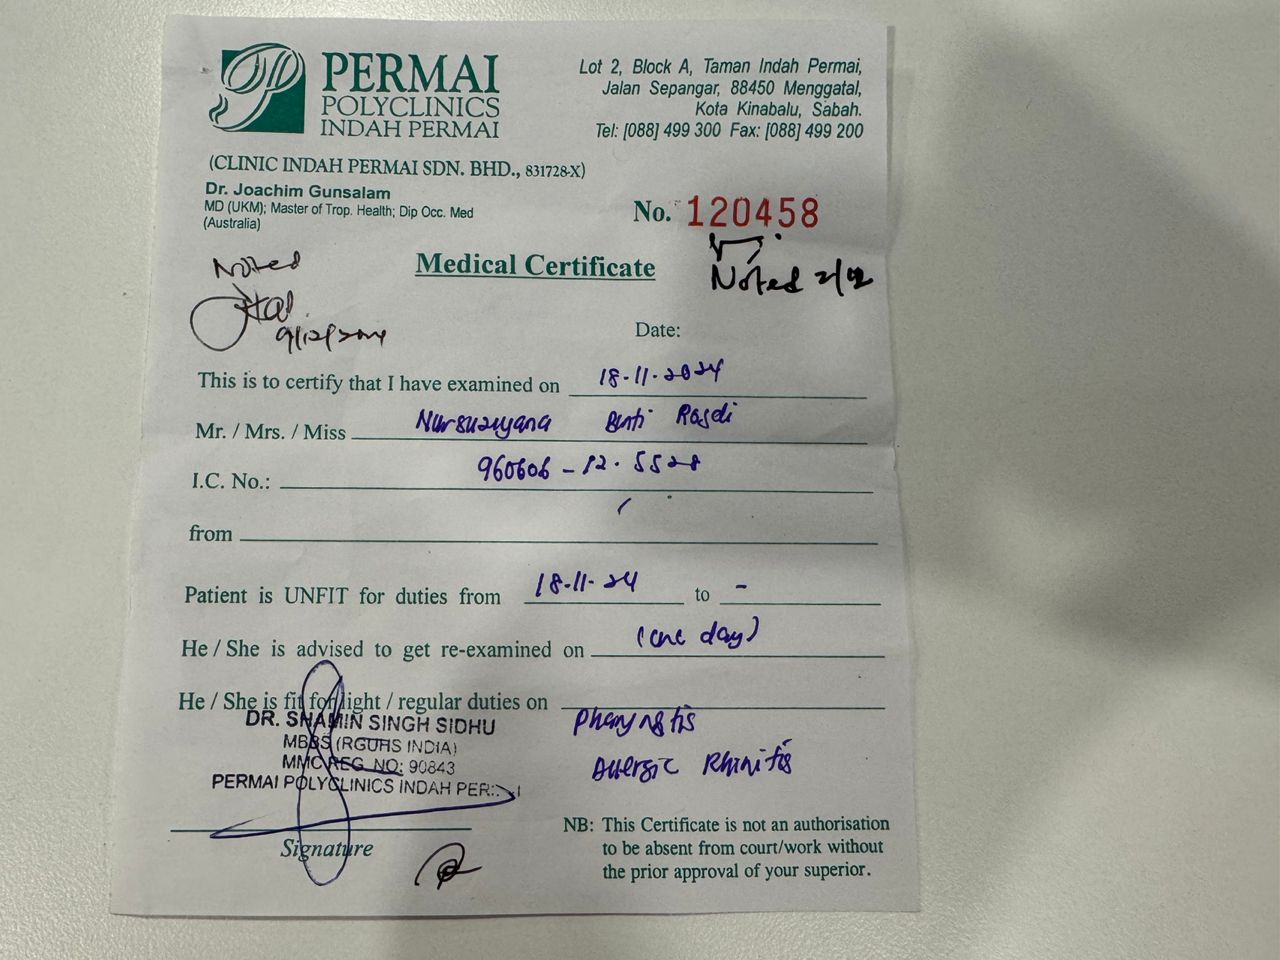 PERMAI
POLYCLINICS
INDAH PERMAI
Lot 2, Block A, Taman Indah Permai,
Jalan Sepangar, 88450 Menggatal,
Kota Kinabalu, Sabah.
Tel: [088] 499 300 Fax: [088] 499 200
(CLINIC INDAH PERMAI SDN. BHD., 831728-X)
Dr. Joachim Gunsalam
MD (UKM); Master of Trop. Health; Dip Occ. Med
(Australia)
No. 120458
Medical Certificate
Noted
9/12/2024
Noted 2/12
Date:
This is to certify that I have examined on 18-11-2024
Mr. / Mrs. / Miss Nursuzuyana Binti Rasdi
I.C. No.: 960606-12-5528
from
Patient is UNFIT for duties from 18-11-24 to -
He / She is advised to get re-examined on (one day)
He / She is fit for light / regular duties on
DR. SHAMIN SINGH SIDHU
MBBS (RGUHS INDIA)
MMC REG. NO: 90843
PERMAI POLYCLINICS INDAH
Pharyngtis
Allergic Rhinitis
Signature
NB: This Certificate is not an authorisation
to be absent from court/work without
the prior approval of your superior.